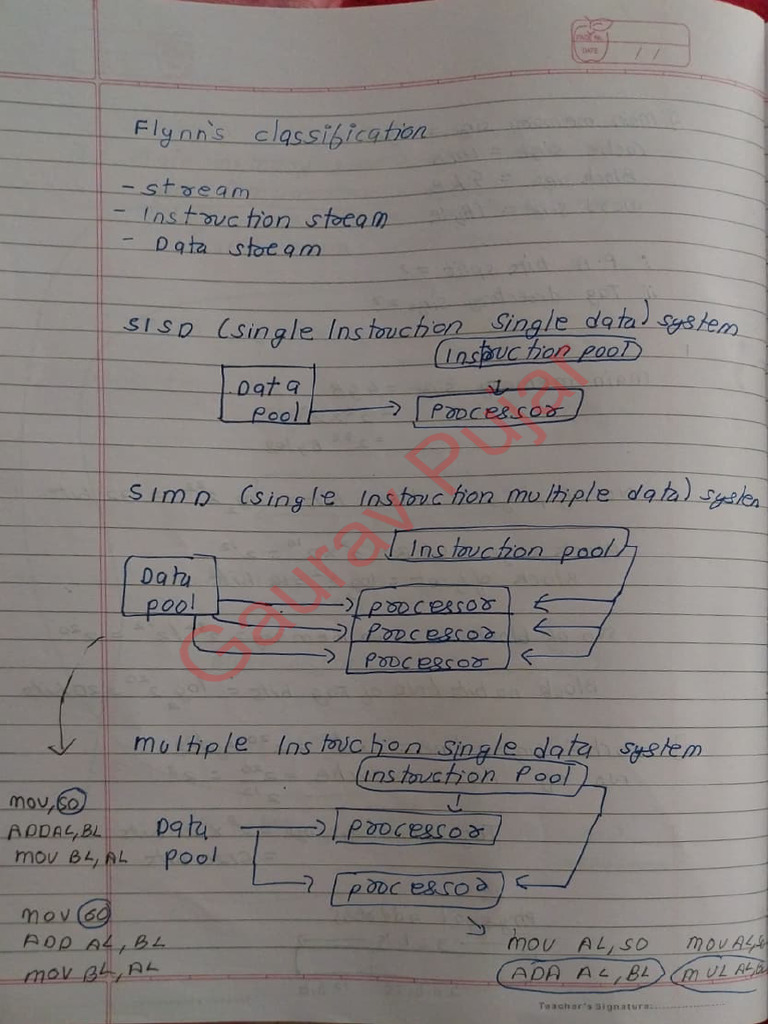 PAGE No.
DATE
/ /
Flynn's classification
- stream
- Instruction stream
- Data stream
SISD (single Instruction single data) system
Instruction pool
Data
pool
processor
SIMD (single instruction multiple data) system
Instruction pool
Data
pool
processor
processor
processor
multiple Instruction single data system
instruction Pool
mov, 50
ADD AL, BL
mov BL, AL
Data
pool
processor
processor
mov 60
ADD AL, BL
mov BL, AL
mov AL, 50 mov AL, 
ADA AL, BL MUL AL, BL
Teacher's Signature:
Gaurav Pujar